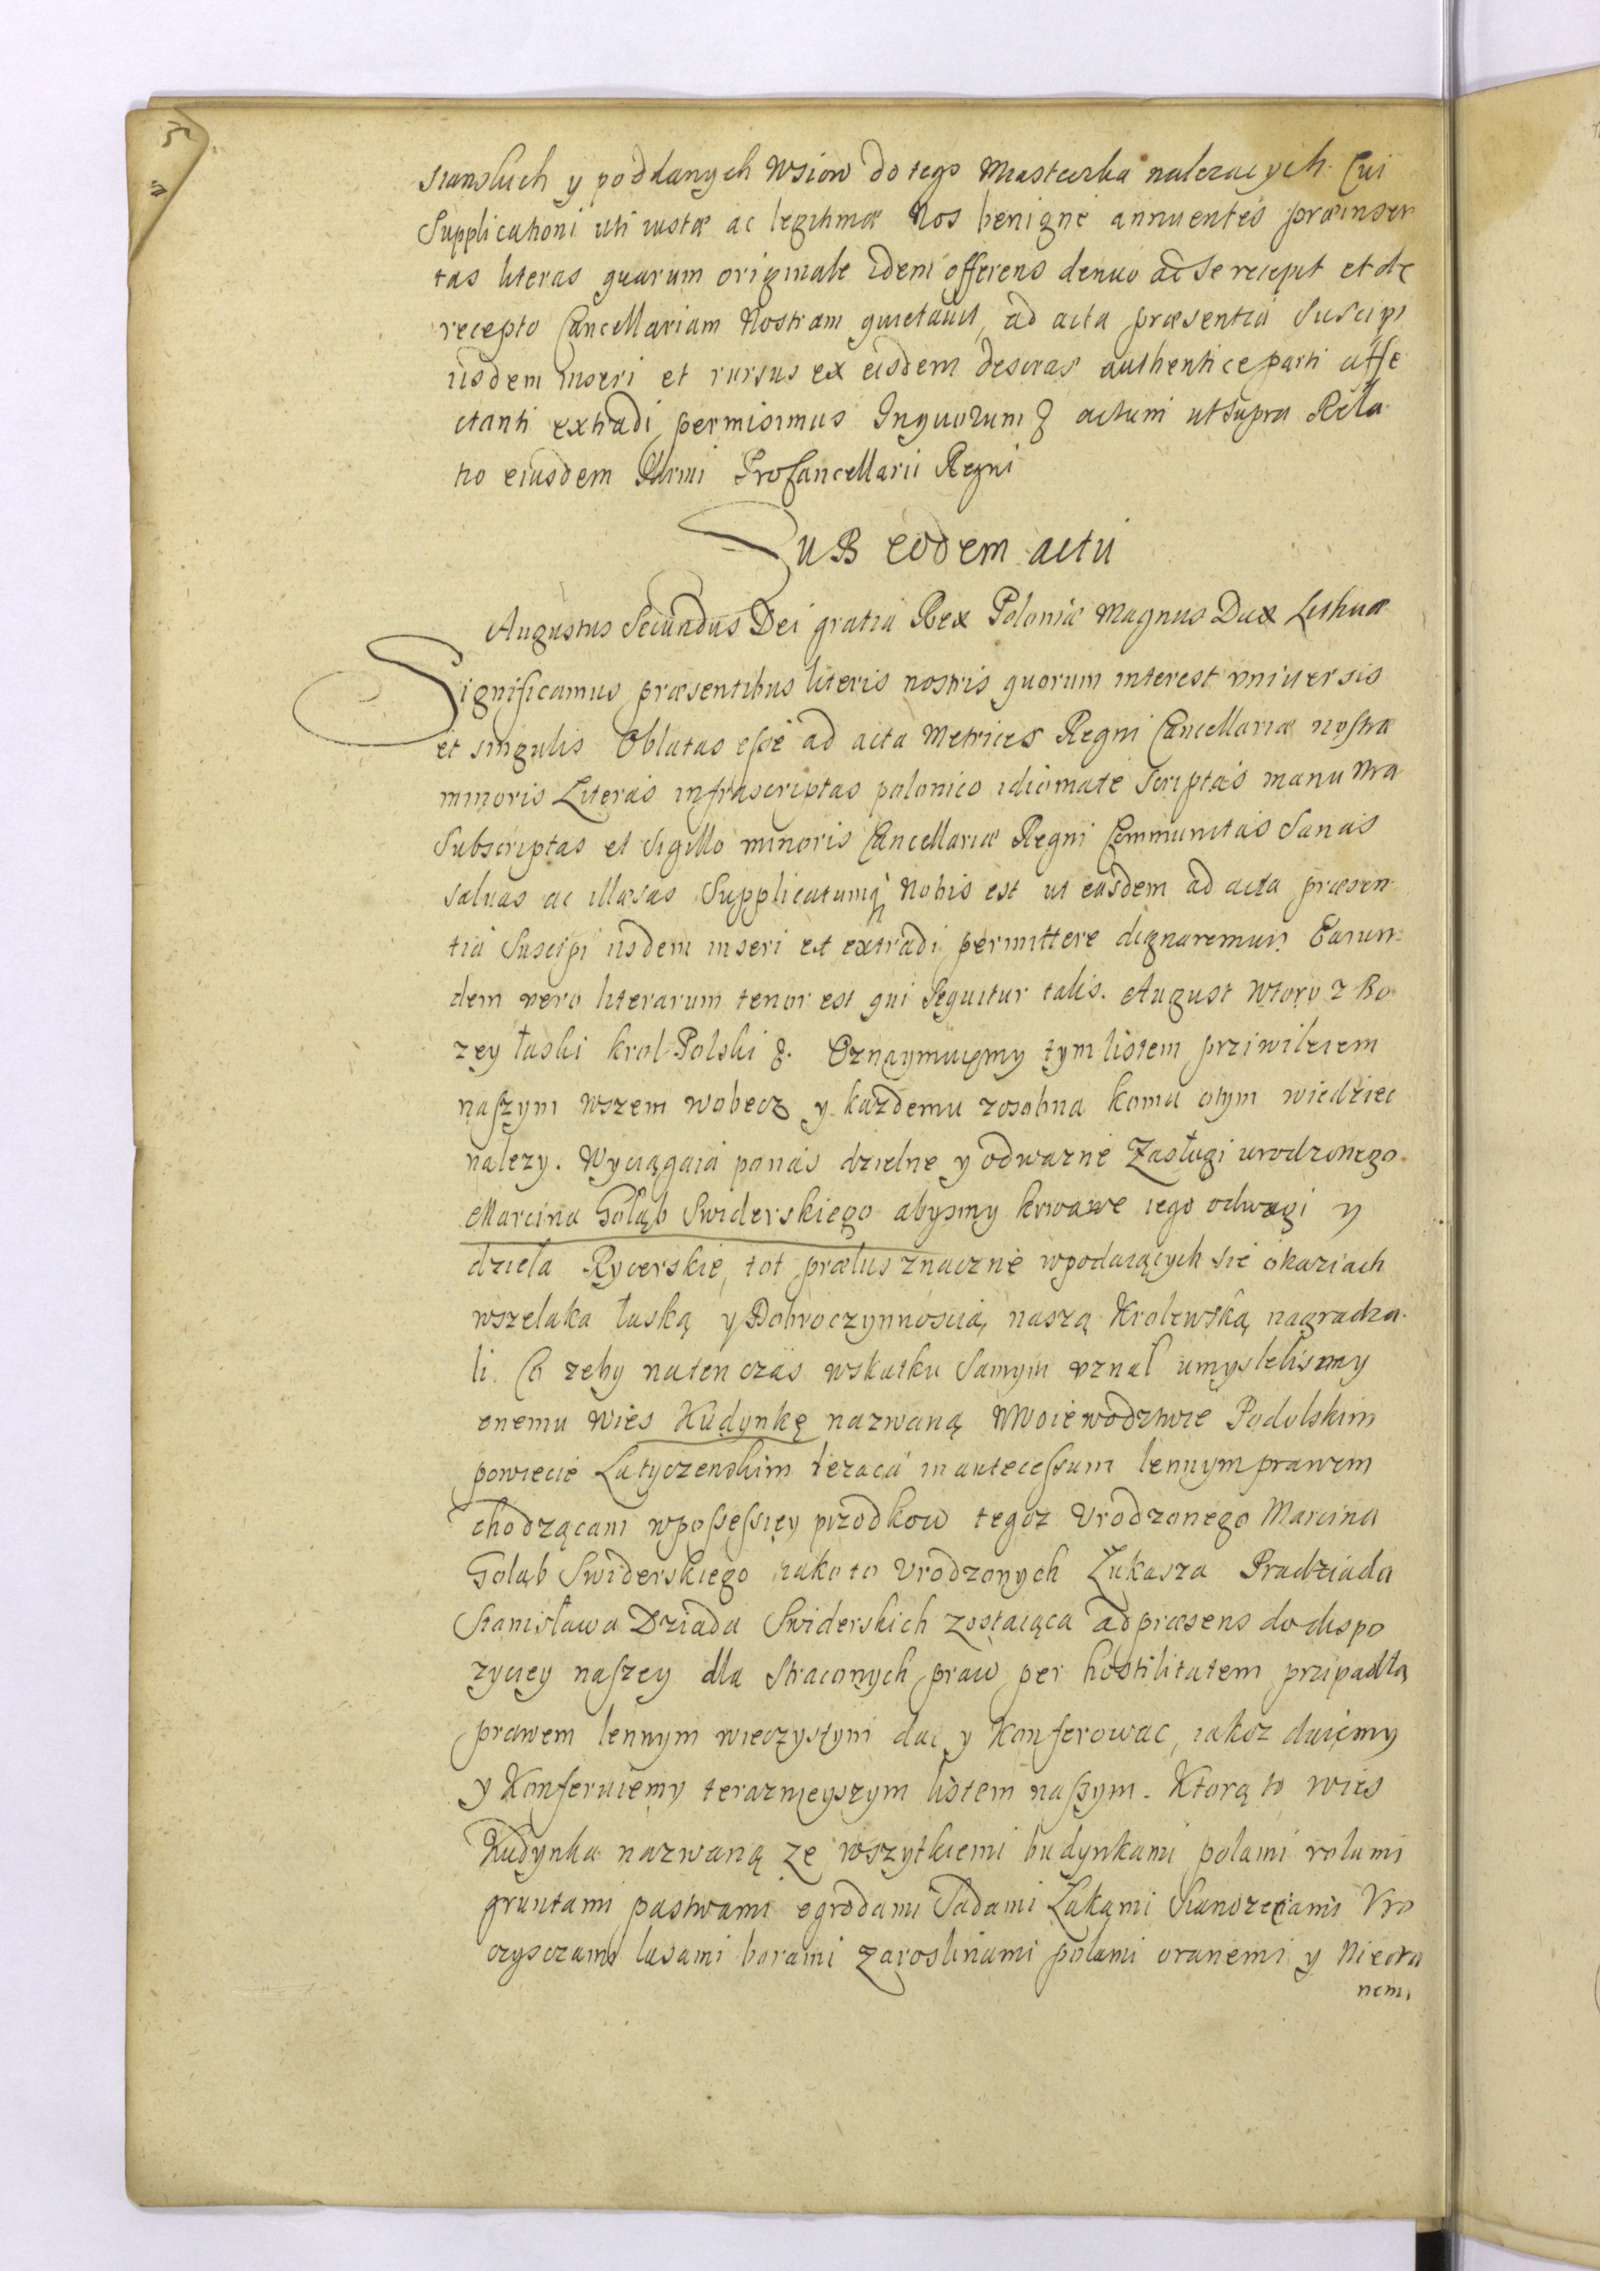 5
skuch y poddanych Wsiow do tego Miasteczka należacych. Cui
Supplicationi uti iustæ ac legitimæ Nos benigne annuentes præinser
tas literas quarum originale idem offerens denuo ad se recepit et de
recepto Cancellariam Nostram quietavit, ad acta præsentia Suscipi
iisdem inseri et rursus ex eisdem descras authentice parti affe
ctanti extradi permisimus In quorum & actum ut supra Rela
tio eiusdem Illrmi ProCancellarii Regni
SuB eodem actu
Augustus Secundus Dei gratia Rex Poloniæ Magnus Dux Lithuæ
Significamus præsentibus literis nostris quorum interest vniversis
et singulis Oblatas esse ad acta Metrices Regni Cancellariæ nostræ
minoris Literas infrascriptas polonico idiomate scriptas manu nra
Subscriptas et Sigillo minoris Cancellariæ Regni Communitas Sanas
salvas ac illæsas Supplicatumq Nobis est ut easdem ad acta præsen
tia Suscipi iisdem inseri et extradi permittere dignaremur. Earun:
dem vero literarum tenor est qui sequitur talis. August Wtory z Bo
zey łaski krol Polski &. Oznaymuięmy tym listem priwileiem
naszym wszem wobecz y każdemu zosobna komu otym wiedziec
nalezy. Wyciągaia ponas dzielne y odwazne Zasługi urodzonego
Marcina Gołąb Swiderskiego abysmy krwawe iego odwagi y
dzieła Rycerskie, tot præliis znacznie wpodaiących sie okaziach
wszelaka łaską y Dobroczynnoscią naszą Krolewską nagradza
li. A zeby naten czas wskutku Samym vznał umyslelismy
onemu Wies Kudynkę nazwaną WWoiewodztwie Podolskim
powiecie Latyczenskim leżaca in antecessum lennym prawem
chodzącam wpossessięy przodkow tegoz Vrodzonego Marcina
Goląb Swiderskiego iako to Vrodzonych Łukasza Pradziada
Stanisława Dziada Swiderskich zostaiąca ad præsens do dispo
zycięy naszey dla Straconych praw per hostilitatem przipadłą
prawem lennym wieczystym dac y Konferowac, iakoz daięmy
y Konferuiemy terazniejszym listem naszym. Ktorą to wies
Kudynka nazwaną ze wszytkiemi budynkami polami rolami
gruntami pastwami ogrodami Sadami Łakąmi Sianozęciami Vro
czysczami lasami borami zaroslinami polami oranemi y Nieora
nemi